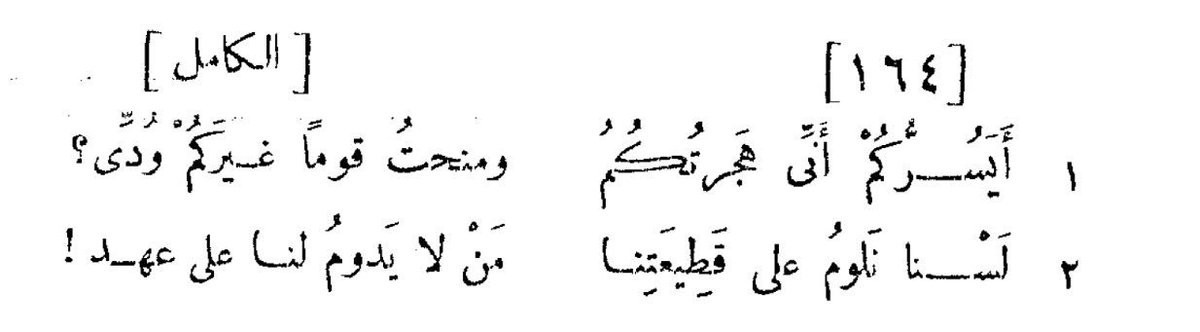 [١٦٤] [الكامل]
١ أَيَسُــرُّكُمْ أَنِّى هَجَرتُـكُمُ ومنحتُ قوماً غـيرَكُمْ وُدِّى؟
٢ لَسْــنا نَلومُ على قَطِيعَتِنـا مَنْ لا يَدومُ لنـا على عهـد!